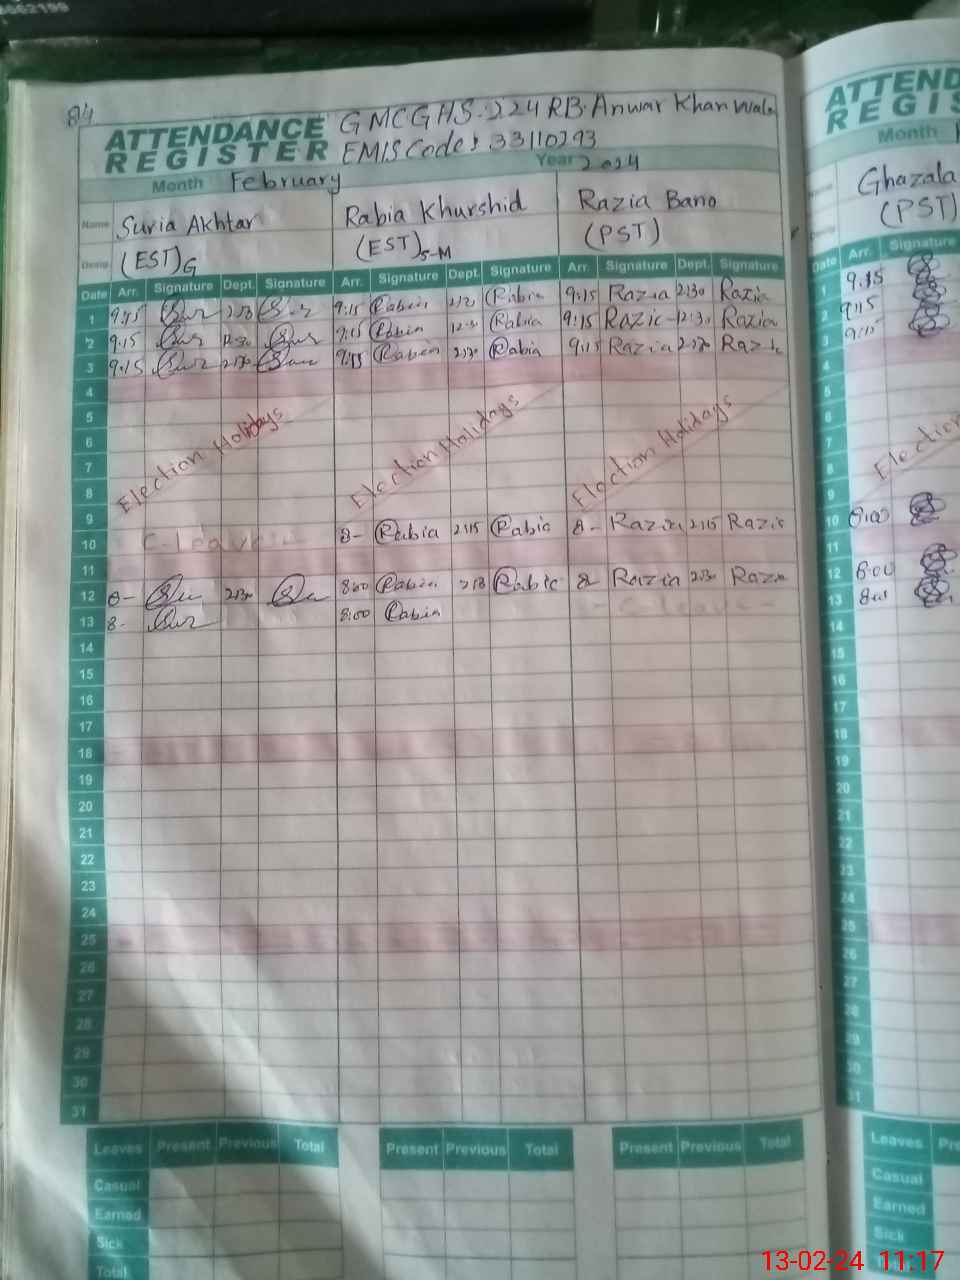 84
ATTENDANCE REGISTER
GMCGHS. 224 RB. Anwar Khan Wala
EMIS Code: 33110293
Month February Year 2024
Name Suria Akhtar Rabia Khurshid Razia Bano
Desig (EST)G (EST)S-M (PST)
Date Arr. Signature Dept. Signature Arr. Signature Dept. Signature Arr. Signature Dept. Signature
1 9:15 9:15 Rabia Rabia 9:15 Razia 2:30 Razia
2 9:15 12:30 9:15 Rabia 12:30 Rabia 9:15 Razia 12:30 Razia
3 9:15 2:30 9:15 Rabia 2:30 Rabia 9:15 Razia 2:30 Razia
4
5
6
7
8
Election Holidays Election Holidays Election Holidays
9
10 C-leave 8- Rabia 2:15 Rabia 8- Razia 2:15 Razia
11
12 8- 2:30 8:00 Rabia Rabia 8- Razia 2:30 Razia
13 8- 8:00 Rabia C-leave
14
15
16
17
18
19
20
21
22
23
24
25
26
27
28
29
30
31
Leaves Present Previous Total Present Previous Total Present Previous Total
Casual
Earned
Sick
Total
ATTEND
REGIS
Month
Name Ghazala
Desig (PST)
Date Arr. Signature
1 9:15
2 9:15
3 9:15
4
5
6
7
8
Election
9
10 8:00
11
12 8:00
13 8:00
14
15
16
17
18
19
20
21
22
23
24
25
26
27
28
29
30
31
Leaves Pre
Casual
Earned
Sick
Total
13-02-24 11:17